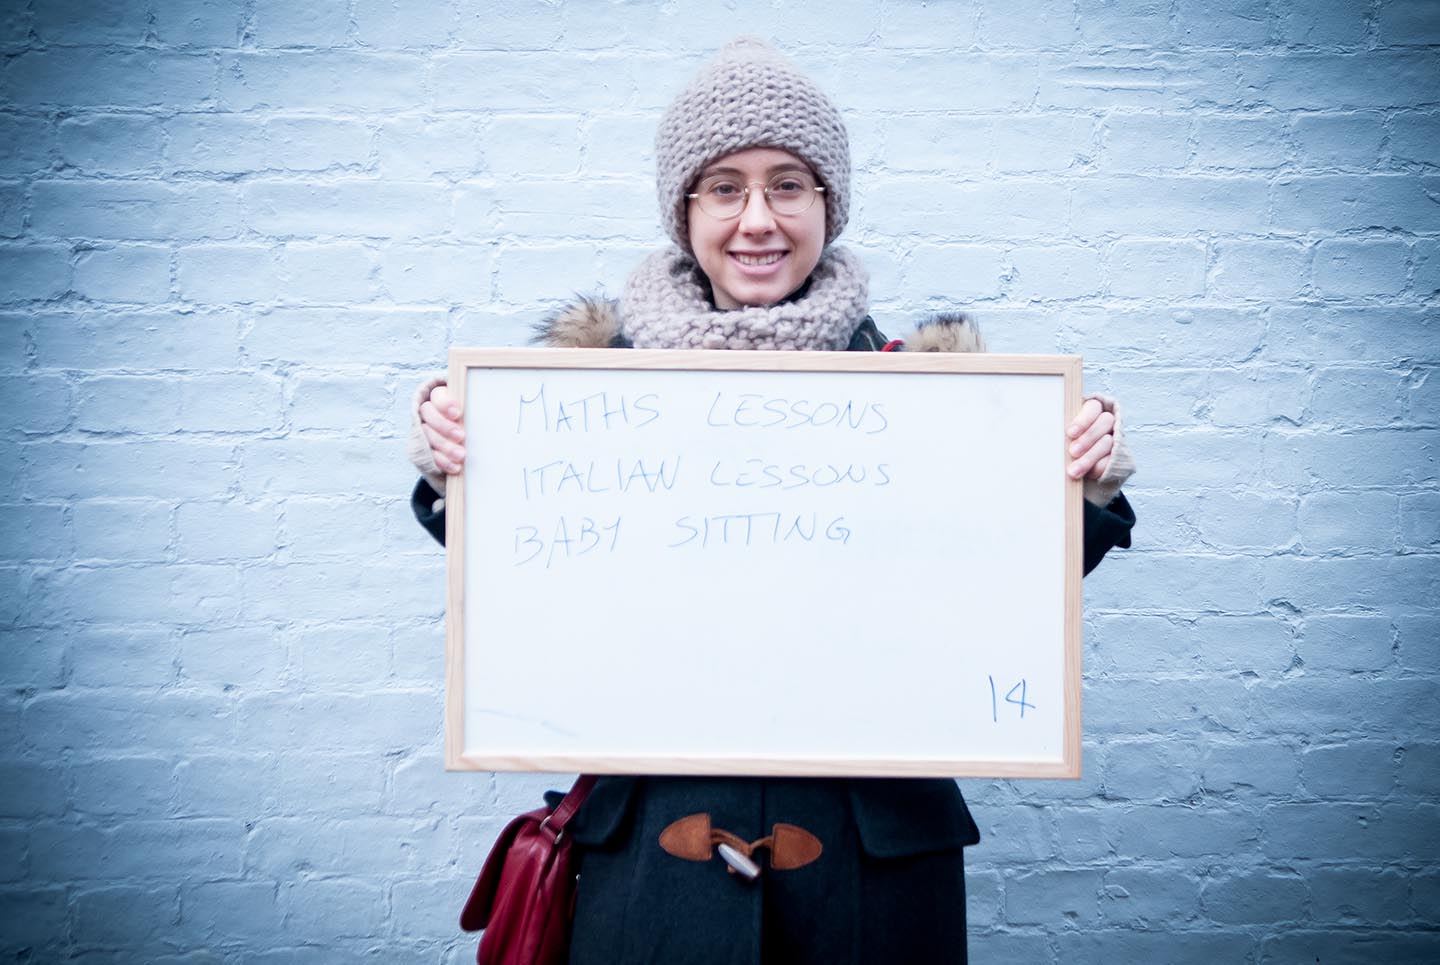 MATHS LESSONS
ITALIAN LESSONS
BABY SITTING
14